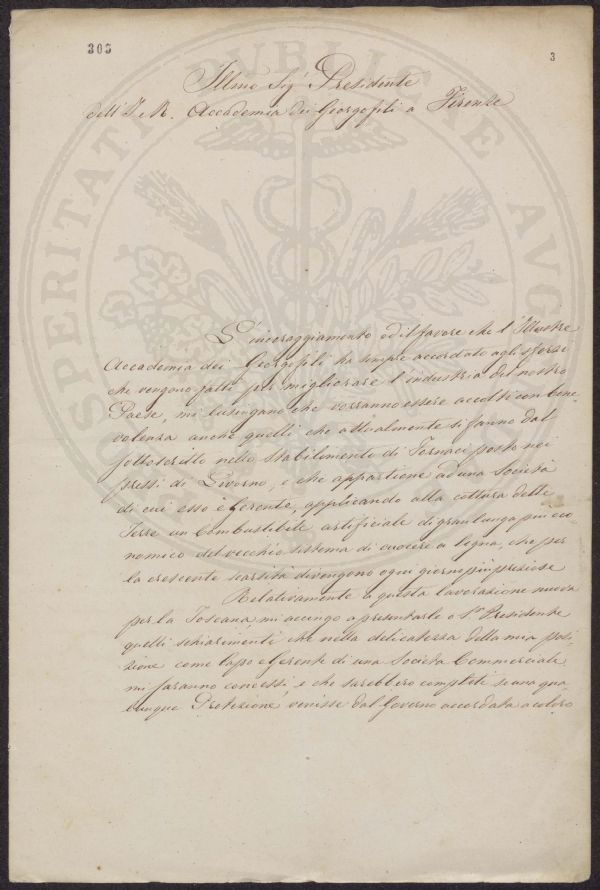 303
3
Illmo Sigr Presidente
dell' I. e R. Accademia dei Georgofili a Firenze
L'incoraggiamento ed il favore che l'Illustre
Accademia dei Georgofili ha sempre accordato agli sforzi
che vengono fatti per migliorare l'industria del nostro
Paese, mi lusingano che vorranno essere accolti con bene
volenza anche quelli che attualmente si fanno dal
sottoscritto nello Stabilimento di Fornaci posto nei
pressi di Livorno, e che appartiene ad una Società
di cui esso è Gerente, applicando alla cottura delle
Terre un Combustibile artificiale di gran lunga più eco-
nomico del vecchio sistema di cuocere a legna, che per
la crescente scarsità divengono ogni giorno più preziose
Relativamente a questa lavorazione nuova
per la Toscana, mi accingo a presentarle o Sr Presidente
quelli schiarimenti che nella delicatezza della mia posi-
zione come Capo e Gerente di una Società Commerciale
mi saranno concessi, e che sarebbero completi se una qua-
lunque Protezione venisse dal Governo accordata a coloro
PROSPERITATI PUBLICAE AUG